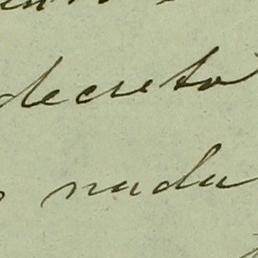 decreto
nada